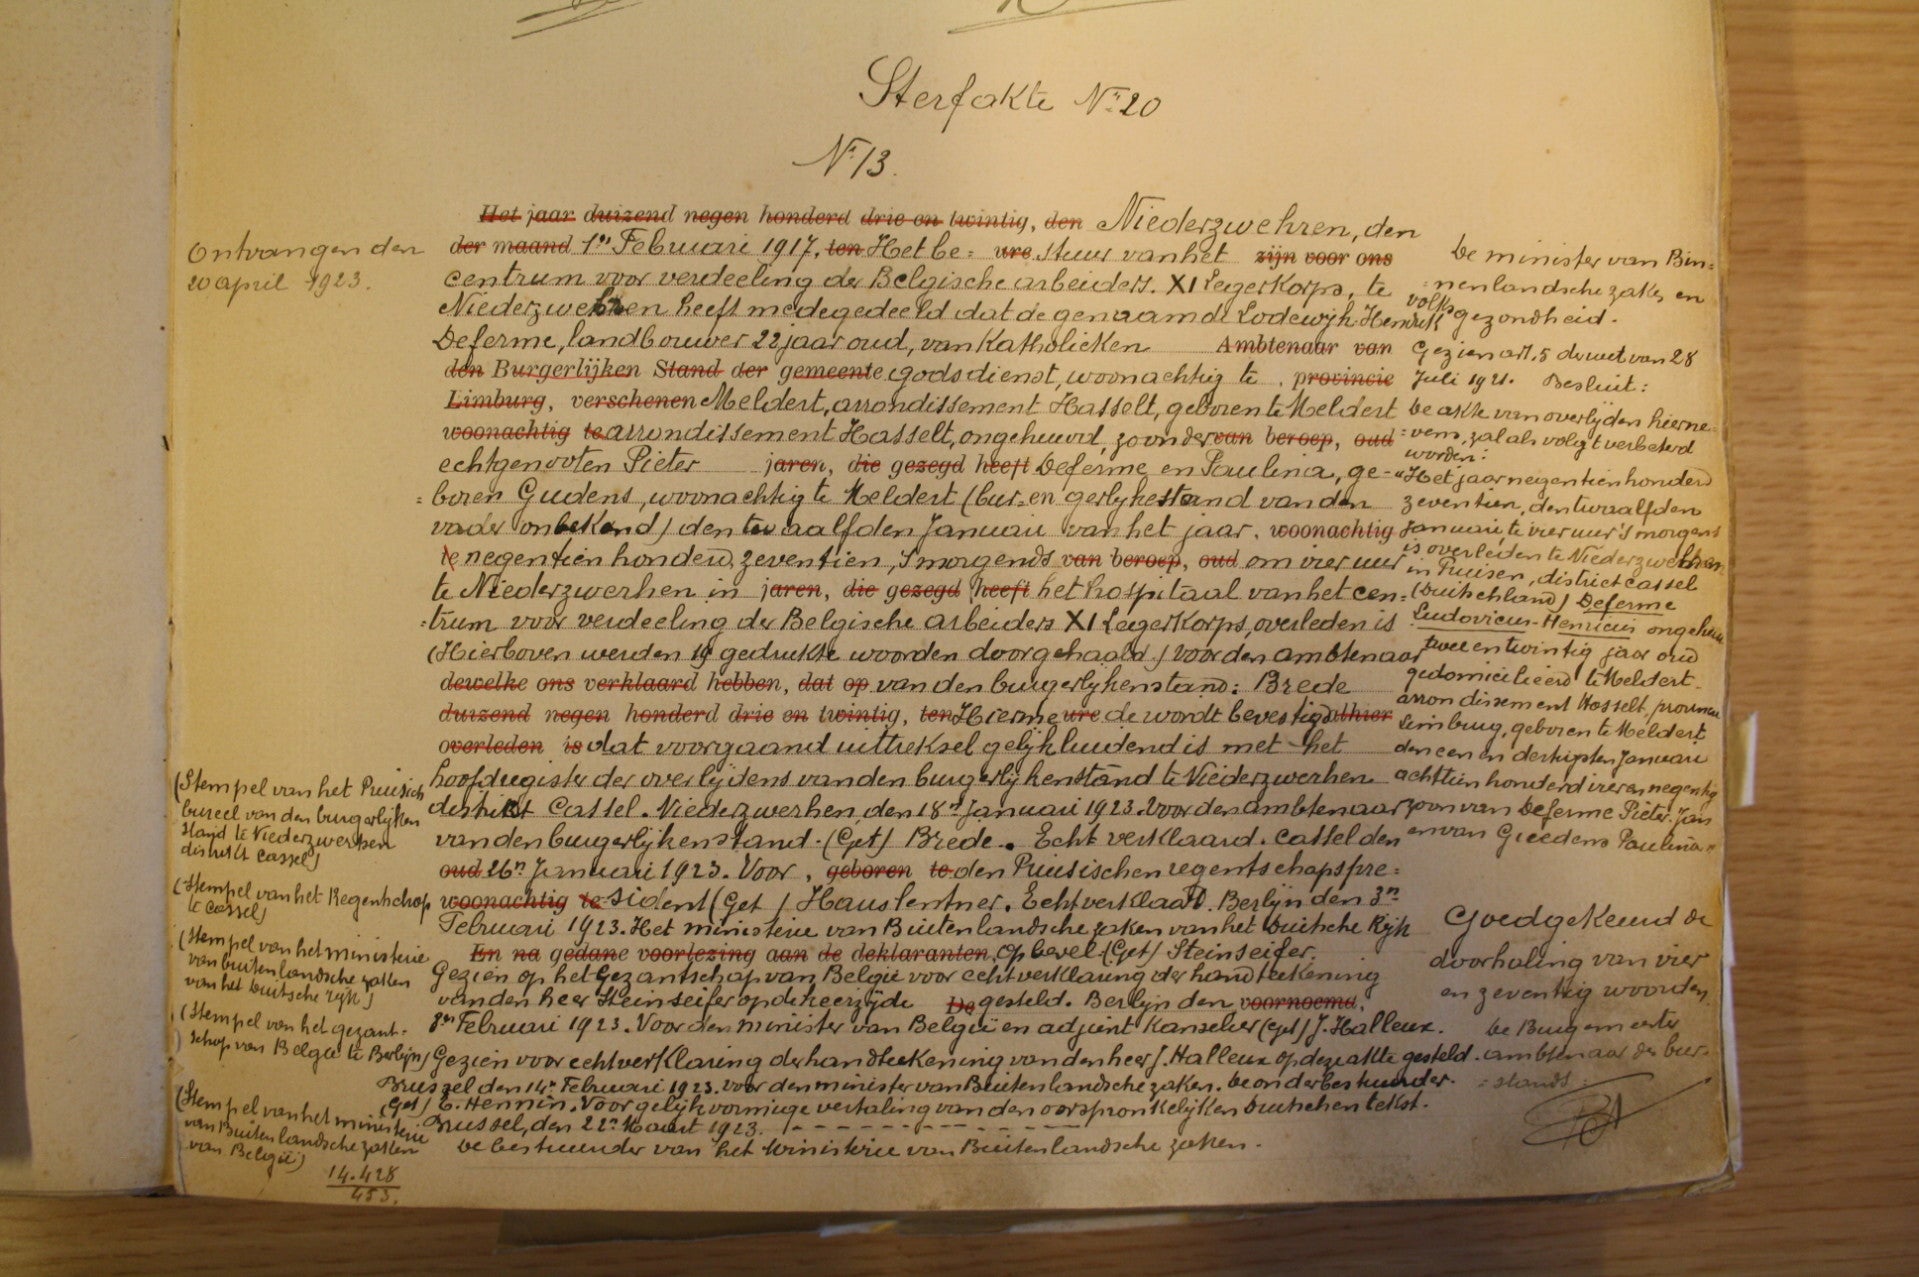 Sterfakte Nr 20
Nr 13.
Het jaar duizend negen honderd drie en twintig, den Niederzwehren, den
der maand 1en Februari 1917. ten Het be= ure stuur van het zijn voor ons
centrum voor verdeeling der Belgische arbeiders. XI Legerkorps, te
Niederzwehren heeft medegedeeld dat de genaamde Lodewijk Hendrik
Deferme, landbouwer 22 jaar oud, van Katholieken Ambtenaar van
den Burgerlijken Stand der gemeente godsdienst, woonachtig te , provincie
Limburg, verschenen Meldert, arrondissement Hasselt, geboren te Meldert
woonachtig te arrondissement Hasselt, ongehuwd, zoon der van beroep, oud
echtgenooten Pieter jaren, die gezegd heeft Deferme en Paulina, ge-
=boren Gudens, woonachtig te Meldert (bur. en gerlykestand van den
vader onbekend) den twaalfden Januari van het jaar. woonachtig
te negentienhonderd zeventien, 's morgends van beroep, oud om vier uur
te Niederzwerhen in jaren, die gezegd heeft het hospitaal van het cen=
=trum voor verdeeling der Belgische arbeiders XI Legerkorps, overleden is
(Hierboven werden 19 gedrukte woorden doorgehaald.) voor den ambtenaar
dewelke ons verklaard hebben, dat op van den burgerlijkenstand: Brede
duizend negen honderd drie en twintig, ten Hierme ure de wordt bevestigd alhier
overleden is dat voorgaand uittreksel gelijkluidend is met het
hoofdregister der overlijdens van den burgerlijkenstand te Niederzwerhen
distrikt Cassel. Niederzwerhen, den 18n Januari 1923. Voor den ambtenaar
van den burgerlijkenstand. (Get) Brede. Echt verklaard. Cassel den
oud 26n Januari 1923. Voor , geboren te den Pruisischen regentschapspre=
woonachtig te sident (Get) Hauslentner. Echt verklaard. Berlijn den 3n
Februari 1923. Het ministerie van Buitenlandsche zaken van het Duitsche Rijk
En na gedane voorlezing aan de deklaranten, Op bevel (Get) Steinseifer.
Gezien op het Gezantschap van België voor echtverklaring der handteekening
van den heer Steinseifer op de keerzijde De gesteld. Berlijn den voornoemd,
8en Februari 1923. Voor den minister van België en adjunt Kanselier (get) J. Halleux.
Gezien voor echtverklaring der handteekening van den heer J. Halleux op deze akte gesteld.
Brussel den 14n Februari 1923. Voor den minister van Buitenlandsche zaken. De onderbestuurder.
(Get) E. Hennin. Voor gelijkvormige vertaling van den oorspronkelijken duitschen tekst.
Brussel, den 22n Maart 1923.
De bestuurder van het Ministerie van Buitenlandsche zaken.
Ontvangen den
20 april 1923.
(Stempel van het Pruisisch
bureel van den burgerlijken
stand te Niederzwerhen
distrikt Cassel)
(Stempel van het Regentschap
te Cassel)
(Stempel van het ministerie
van buitenlandsche zaken
van het Duitsche rijk)
(Stempel van het gezant=
schap van België te Berlijn)
(Stempel van het ministerie
van Buitenlandsche zaken
van België)
14.428
453.
De minister van Bin=
=nenlandsche zaken en
volksgezondheid.
Gezien art. 5 der wet van 28
Juli 1921. Besluit:
De akte van overlijden hierne=
=vens, zal als volgt verbeterd
worden:
"Het jaar negentienhonderd
zeventien, den twaalfden
Januari, te vier uur 's morgens
is overleden te Niederzwehren
in Pruisen, district Cassel
(Duitschland) Deferme
Ludovicus-Henricus ongehuwd
twee en twintig jaar oud
gedomicilieerd te Meldert
arrondissement Hasselt, provincie
Limburg, geboren te Meldert
den een en dertigsten Januari
achttien honderd vier en negentig
zoon van Deferme Pieter-Jan
en van Gieedens Paulina"
Goedgekeurd de
doorhaling van vier
en zeventig woorden
De Burgemeester
ambtenaar der bur.
=stands.